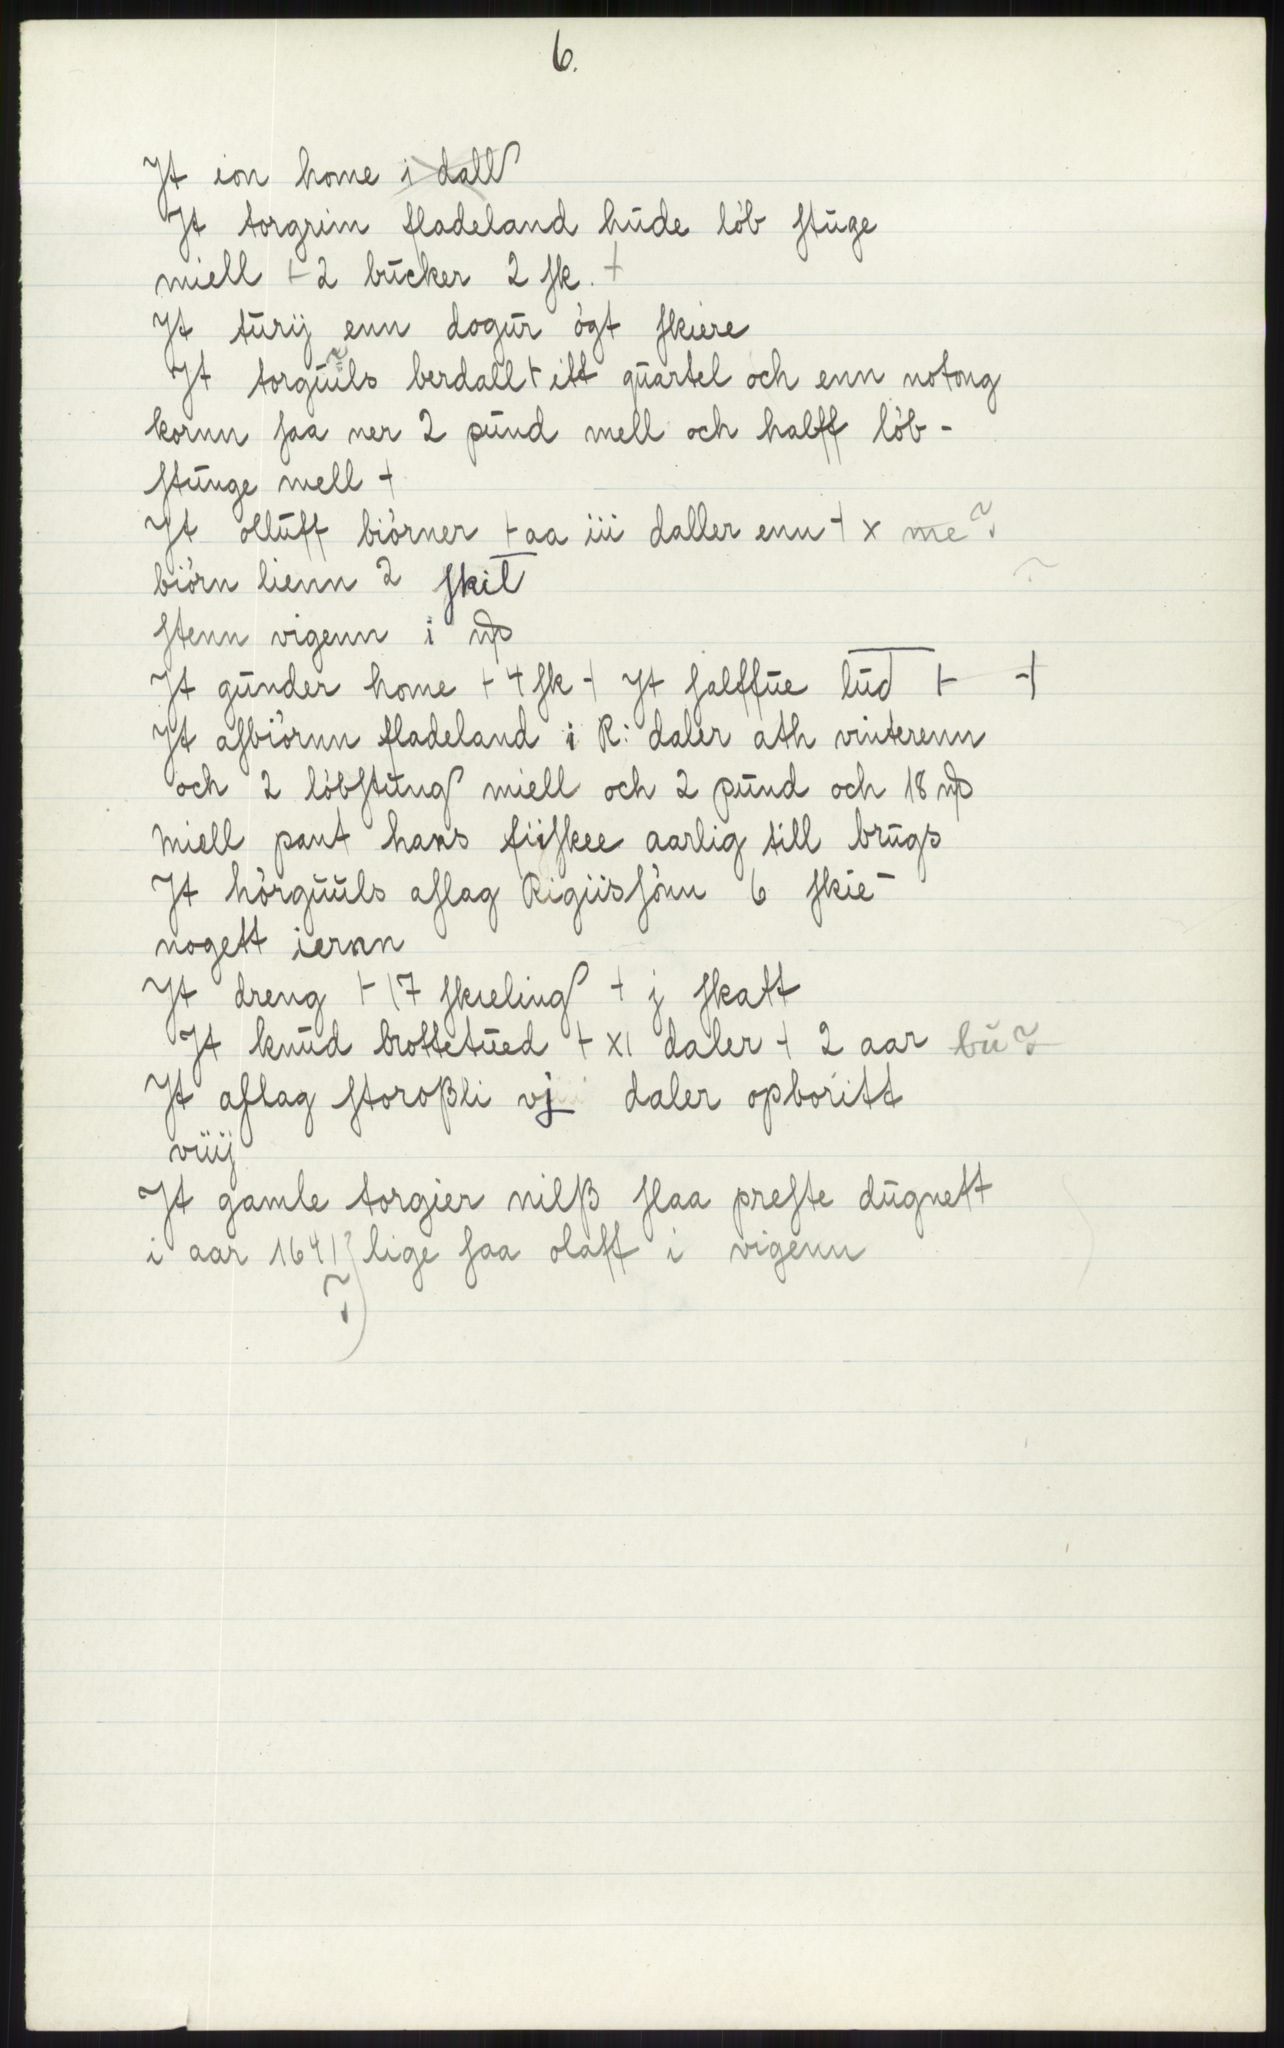 6.
Jt ion home i dall
Jt torgrim fladeland hude løb stuge
miell ⊢ 2 bucker 2 sk. ⊣
Jt turij enn dogur øgt skiere
Jt torguuls berdall ⊢ itt quartel och enn notong
kornn saa ner 2 pund mell och halff løb -
stunge mell ⊣
Jt olluff biørner ⊢ aa iii daller enn ⊣ x me ?
biørn lienn 2 skil
stenn vigenn i
Jt gunder home ⊢ 4 sk ⊣ Jt salffue lud ⊢ ⊣
Jt asbiørnn fladeland i R: daler ath vinterenn
och 2 løbstung miell och 2 pund och 18
miell pant hans fiiskee aarlig till brugs
Jt hørguuls aslag Rigiissønn 6 skie -
nogett iernn
Jt dreng ⊢ 17 skieling ⊣ j skatt
Jt knud brottetued ⊢ xi daler ⊣ 2 aar bu ?
Jt aslag storoßli vj daler opboritt
viiij
Jt gamle torgier nilß slaa preste dugnett
i aar 1641? lige saa olaff i vigenn
?